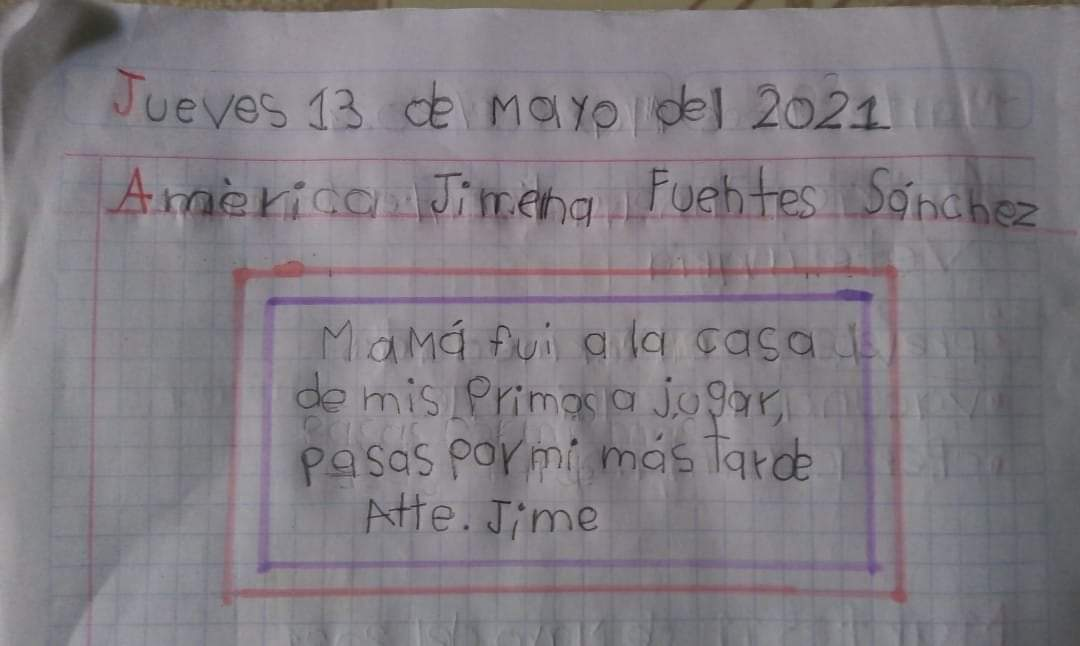 Jueves 13 de mayo del 2021
Amèrica Jimena Fuentes Sánchez
Mamá fui a la casa
de mis primos a jugar,
pasas por mi más tarde
Atte. Jime